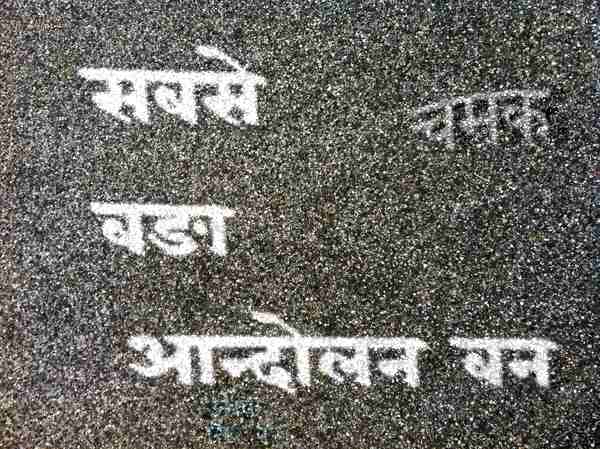 सबसे चमक
वडा
आन्दोलन वन